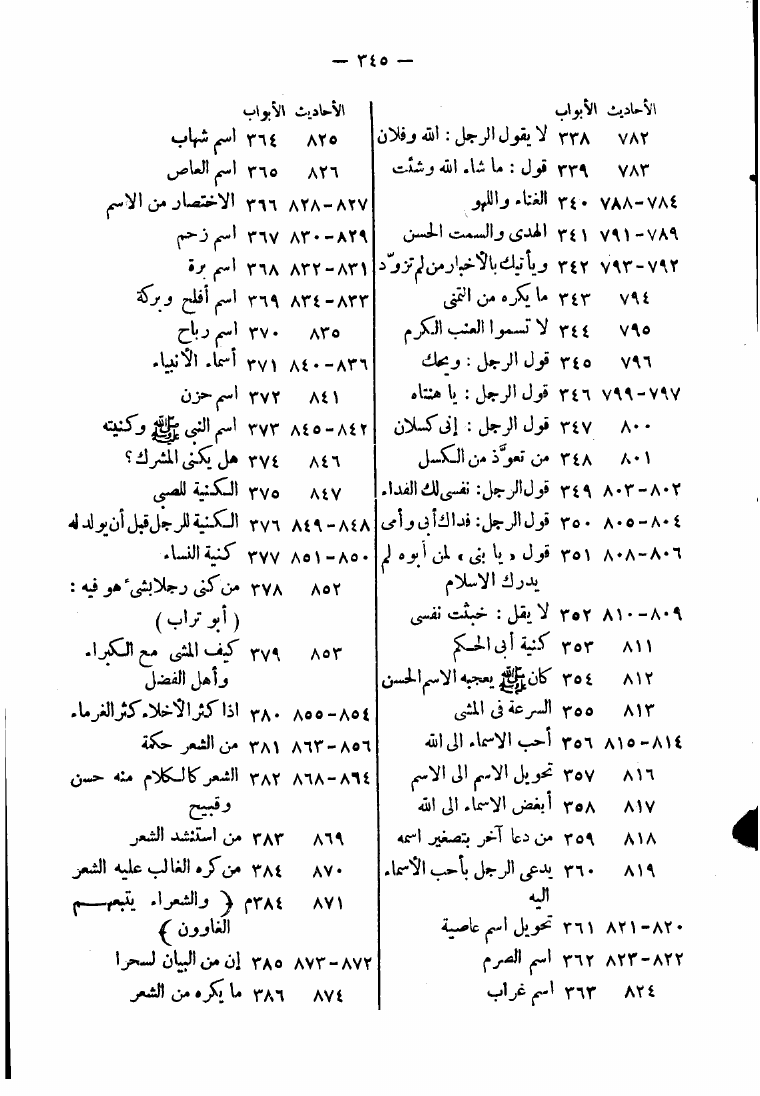 — ٣٤٥ —
الأحاديث الأبواب
٧٨٢ ٣٣٨ لا يقول الرجل : الله وفلان
٧٨٣ ٣٣٩ قول : ما شاء الله وشئت
٧٨٤–٧٨٨ ٣٤٠ الغناء واللهو
٧٨٩–٧٩١ ٣٤١ الهدى والسمت الحسن
٧٩٢–٧٩٣ ٣٤٢ ويأتيك بالأخبار من لم تزوّد
٧٩٤ ٣٤٣ ما يكره من التمنى
٧٩٥ ٣٤٤ لا تسموا العنب الكرم
٧٩٦ ٣٤٥ قول الرجل : ويحك
٧٩٧–٧٩٩ ٣٤٦ قول الرجل : يا هنتاه
٨٠٠ ٣٤٧ قول الرجل : إنى كسلان
٨٠١ ٣٤٨ من تعوّذ من الكسل
٨٠٢–٨٠٣ ٣٤٩ قول الرجل: نفسى لك الفداء
٨٠٤–٨٠٥ ٣٥٠ قول الرجل: فداك أبى وأمى
٨٠٦–٨٠٨ ٣٥١ قول « يا بنى » لمن أبوه لم
يدرك الاسلام
٨٠٩–٨١٠ ٣٥٢ لا يقل : خبثت نفسى
٨١١ ٣٥٣ كنية أبى الحكم
٨١٢ ٣٥٤ كان ﷺ يعجبه الاسم الحسن
٨١٣ ٣٥٥ السرعة فى المشى
٨١٤–٨١٥ ٣٥٦ أحب الاسماء الى الله
٨١٦ ٣٥٧ تحويل الاسم الى الاسم
٨١٧ ٣٥٨ أبغض الاسماء الى الله
٨١٨ ٣٥٩ من دعا آخر بتصغير اسمه
٨١٩ ٣٦٠ يدعى الرجل بأحب الأسماء
اليه
٨٢٠–٨٢١ ٣٦١ تحويل اسم عاصية
٨٢٢–٨٢٣ ٣٦٢ اسم الصرم
٨٢٤ ٣٦٣ اسم غراب
الأحاديث الأبواب
٨٢٥ ٣٦٤ اسم شهاب
٨٢٦ ٣٦٥ اسم العاص
٨٢٧–٨٢٨ ٣٦٦ الاختصار من الاسم
٨٢٩–٨٣٠ ٣٦٧ اسم زحم
٨٣١–٨٣٢ ٣٦٨ اسم برة
٨٣٣–٨٣٤ ٣٦٩ اسم أفلح وبركة
٨٣٥ ٣٧٠ اسم رباح
٨٣٦–٨٤٠ ٣٧١ أسماء الأنبياء
٨٤١ ٣٧٢ اسم حزن
٨٤٢–٨٤٥ ٣٧٣ اسم النبى ﷺ وكنيته
٨٤٦ ٣٧٤ هل يكنى المشرك ؟
٨٤٧ ٣٧٥ الكنية للصبى
٨٤٨–٨٤٩ ٣٧٦ الكنية للرجل قبل أن يولد له
٨٥٠–٨٥١ ٣٧٧ كنية النساء
٨٥٢ ٣٧٨ من كنى رجلا بشىء هو فيه :
( أبو تراب )
٨٥٣ ٣٧٩ كيف المشى مع الكبراء
وأهل الفضل
٨٥٤–٨٥٥ ٣٨٠ اذا كثر الأخلاء كثر الغرماء
٨٥٦–٨٦٣ ٣٨١ من الشعر حكمة
٨٦٤–٨٦٨ ٣٨٢ الشعر كالكلام منه حسن
وقبيح
٨٦٩ ٣٨٣ من استنشد الشعر
٨٧٠ ٣٨٤ من كره الغالب عليه الشعر
٨٧١ ٣٨٤م ﴿ والشعراء يتبعهم
الغاوون ﴾
٨٧٢–٨٧٣ ٣٨٥ إن من البيان لسحرا
٨٧٤ ٣٨٦ ما يكره من الشعر